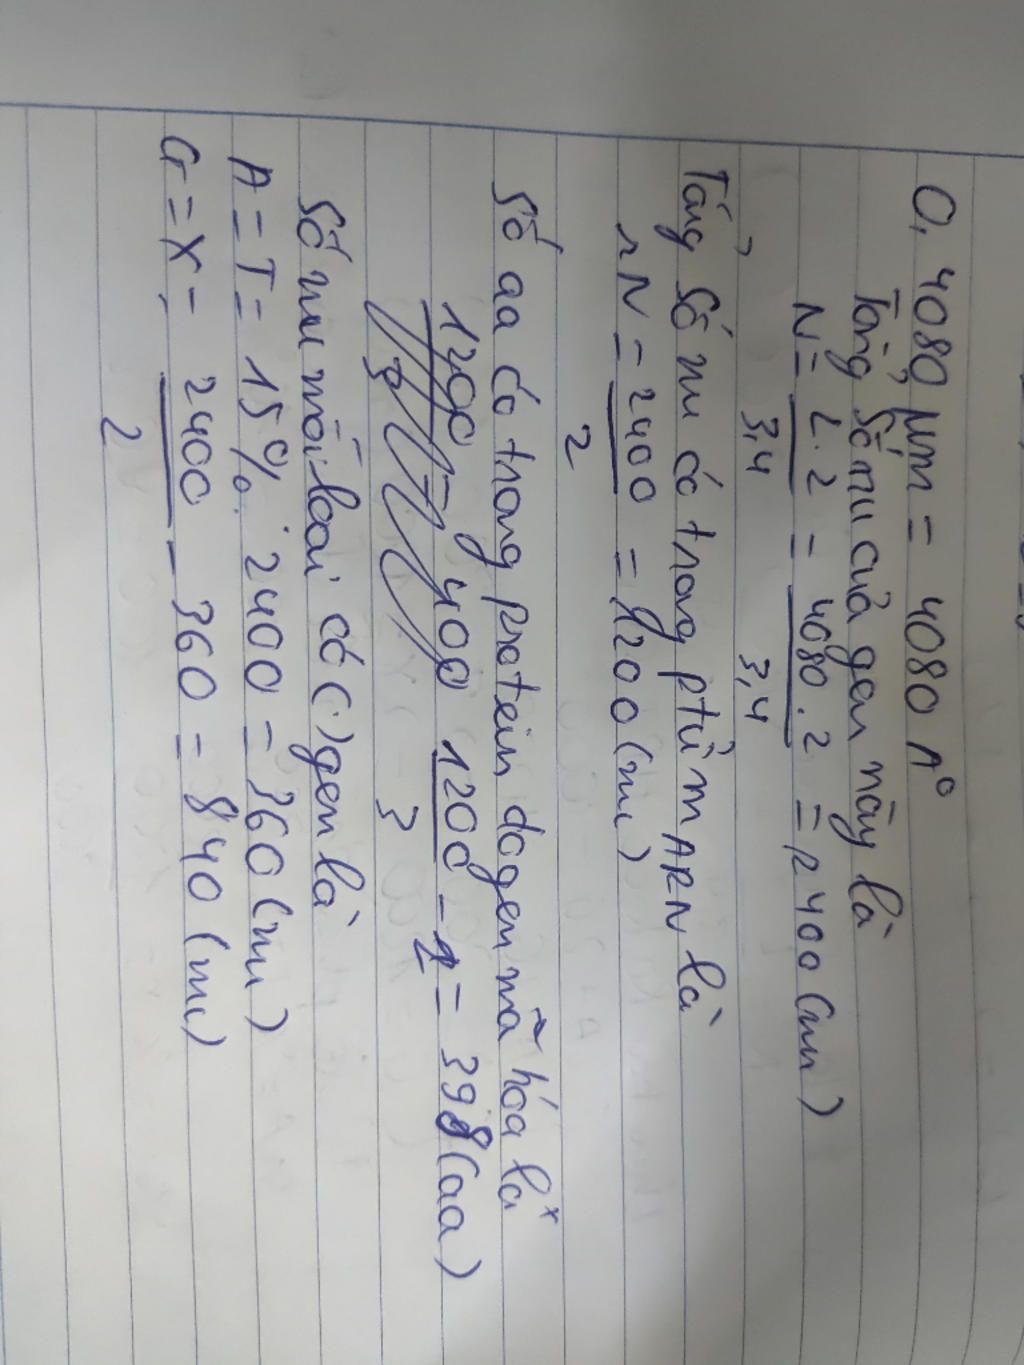 0,4080 µm = 4080 A°
Tổng số nu của gen này là
N = L.2 = 4080.2 = 2400 (nu)
3,4 3,4
Tổng số nu có trong ptử mARN là
rN = 2400 = 1200 (nu)
2
Số aa có trong protein do gen mã hóa là
1200 = 400 1200 - 2 = 398 (aa)
3 3
Số nu mỗi loại có (.) gen là
A = T = 15%. 2400 = 360 (nu)
G = X = 2400 - 360 = 840 (nu)
2